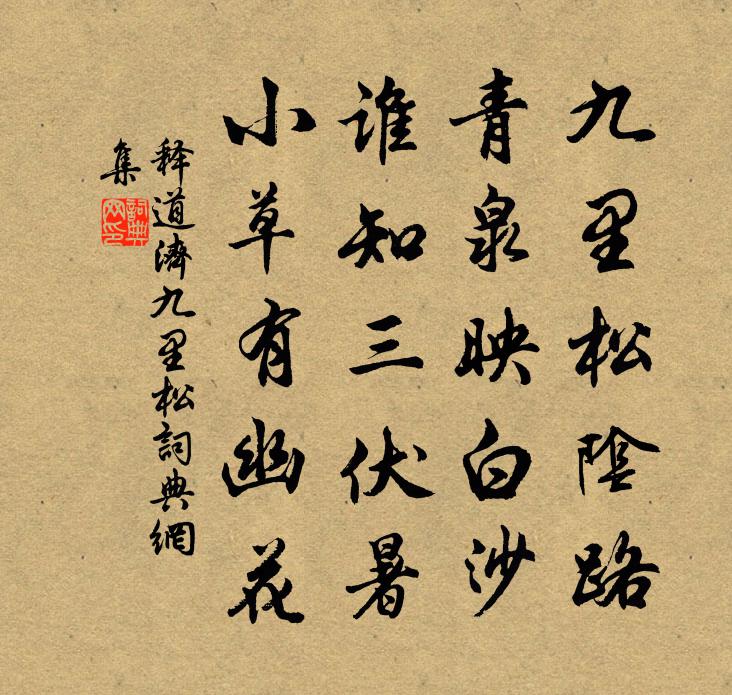 九里松陰路
青泉映白沙
谁知三伏暑
小草有幽花
释道濟九里松詞典網
集
詞典網印